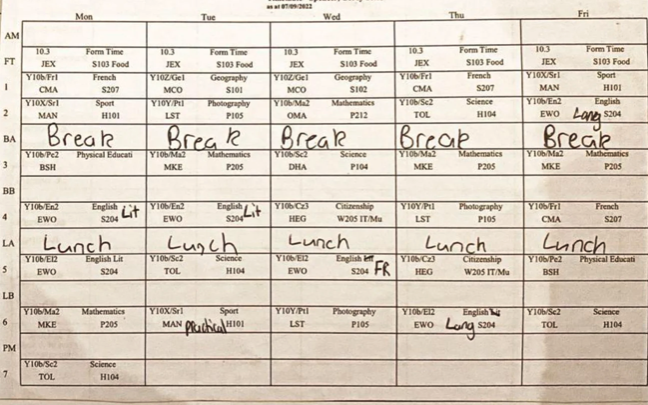 as at 07/09/2022
Mon Tue Wed Thu Fri
AM
10.3 Form Time 10.3 Form Time 10.3 Form Time 10.3 Form Time 10.3 Form Time
FT JEX S103 Food JEX S103 Food JEX S103 Food JEX S103 Food JEX S103 Food
Y10b/Fr1 French Y10Z/Ge1 Geography Y10Z/Ge1 Geography Y10b/Fr1 French Y10X/Sr1 Sport
1 CMA S207 MCO S101 MCO S102 CMA S207 MAN H101
Y10X/Sr1 Sport Y10Y/Pt1 Photography Y10b/Ma2 Mathematics Y10b/Sc2 Science Y10b/En2 English
2 MAN H101 LST P105 OMA P212 TOL H104 EWO Lang S204
BA Break Break Break Break Break
Y10b/Pe2 Physical Educati Y10b/Ma2 Mathematics Y10b/Sc2 Science Y10b/Ma2 Mathematics Y10b/Ma2 Mathematics
3 BSH MKE P205 DHA P104 MKE P205 MKE P205
BB
Y10b/En2 English Y10b/En2 English Y10b/Cz3 Citizenship Y10Y/Pt1 Photography Y10b/Fr1 French
4 EWO S204 Lit EWO S204 Lit HEG W205 IT/Mu LST P105 CMA S207
LA Lunch Lunch Lunch Lunch Lunch
Y10b/El2 English Lit Y10b/Sc2 Science Y10b/El2 English Y10b/Cz3 Citizenship Y10b/Pe2 Physical Educati
5 EWO S204 TOL H104 EWO S204 FR HEG W205 IT/Mu BSH
LB
Y10b/Ma2 Mathematics Y10X/Sr1 Sport Y10Y/Pt1 Photography Y10b/El2 English Y10b/Sc2 Science
6 MKE P205 MAN practical H101 LST P105 EWO Lang S204 TOL H104
PM
Y10b/Sc2 Science
7 TOL H104